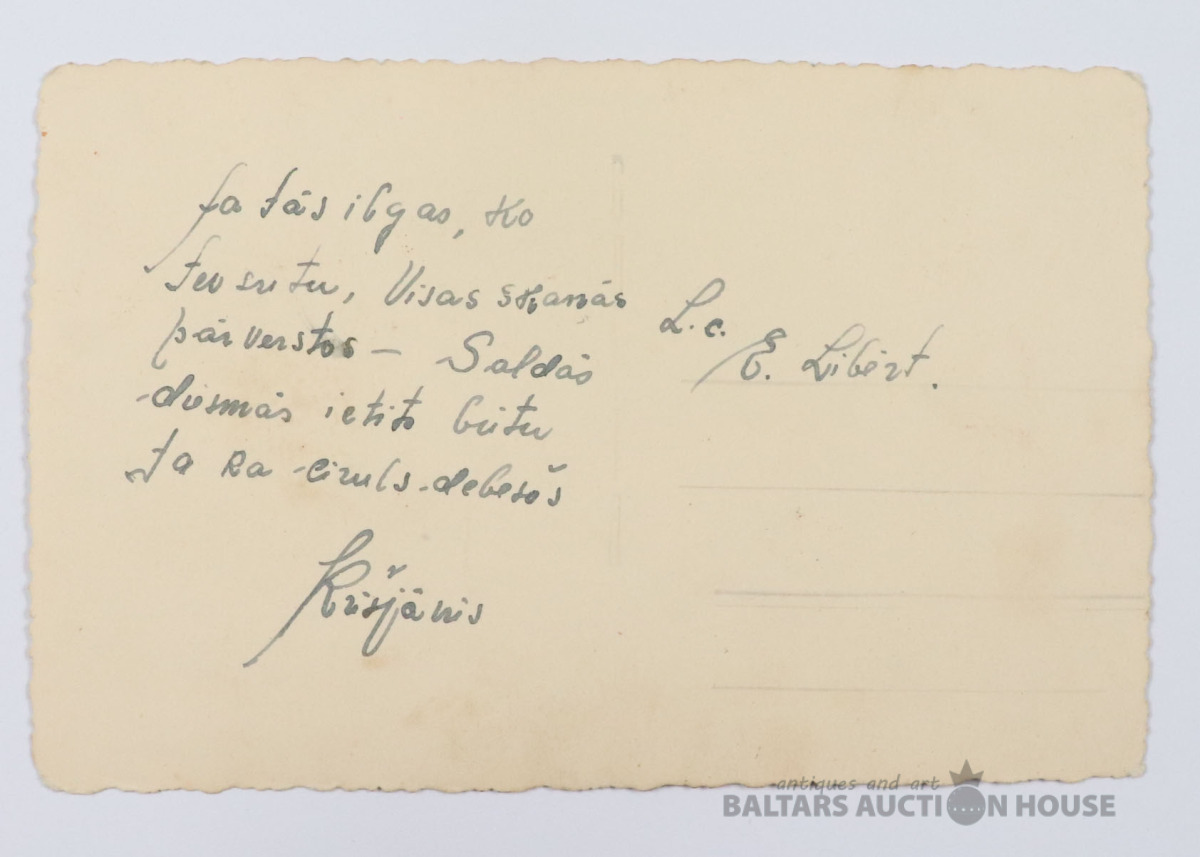 Ja tās ilgas, ko
Tev sūtu, Visas skaņās
pārverstos – Saldās
dvesmās ietīts būtu
Tā kā cīruls debesīs
Krišjānis
L.c.
E. Libērt.
antiques and art
BALTARS AUCTION HOUSE